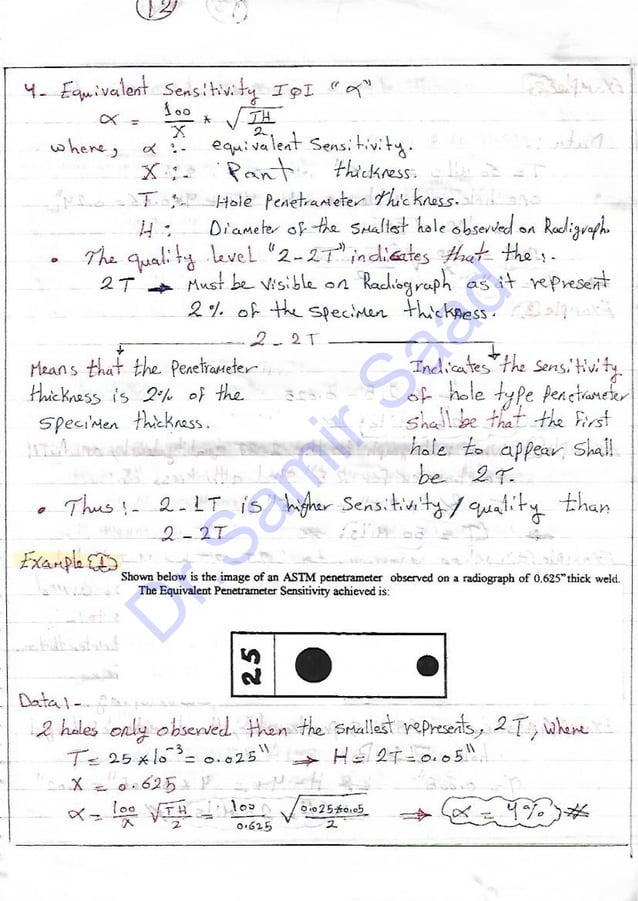 12
4- Equivalent Sensitivity IQI "α"
α = 100/X * √TH/2
where, α :- equivalent Sensitivity.
X :- Part thickness.
T :- Hole Penetrameter thickness.
H : Diameter of the smallest hole observed on Radigraph.
• The quality level "2-2T" indicates that the :-
2T → Must be visible on Radiograph as it represent
2% of the specimen thickness.
2-2T
Means that the Penetrameter
thickness is 2% of the
specimen thickness.
Indicates the sensitivity
of hole type Penetrameter
shall be that the first
hole to appear, shall
be 2T.
• Thus :- 2-1T is higher sensitivity / quality than
2-2T
Example 1
Shown below is the image of an ASTM penetrameter observed on a radiograph of 0.625" thick weld.
The Equivalent Penetrameter Sensitivity achieved is:
25
Data :-
2 holes only observed then the smallest represents, 2T, where
T = 25 * 10⁻³ = 0.025" ⇒ H = 2T = 0.05"
X = 0.625
α = 100/x √TH/2 = 100/0.625 √0.025*0.05/2 ⇒ α = 4% #
Dr Samir Saad